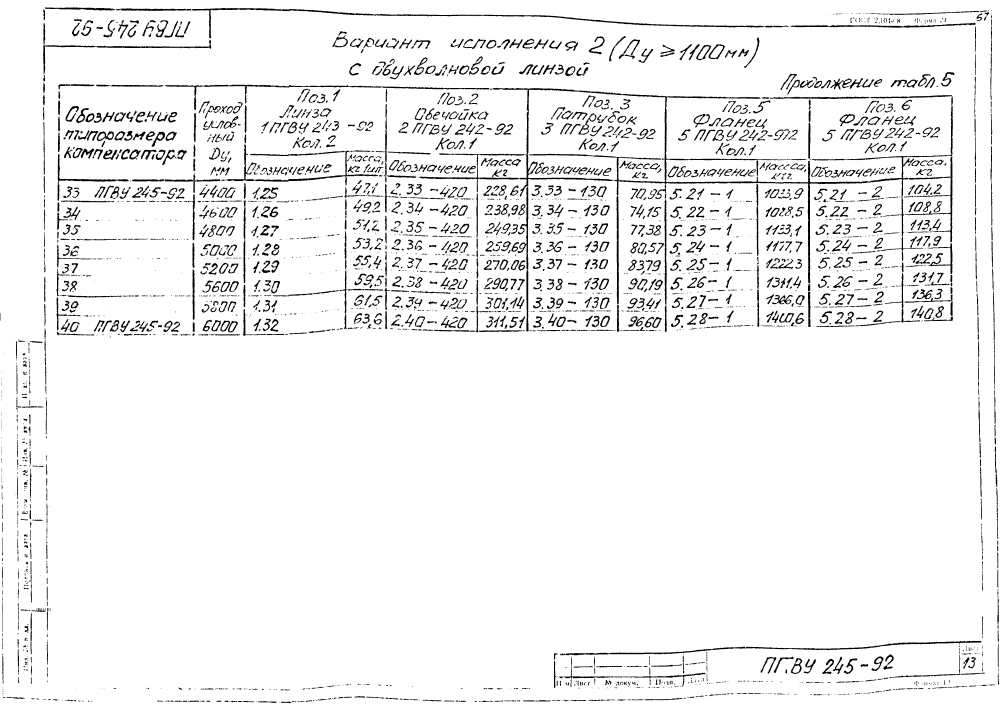 ГОСТ 2.104-68 Форма 2а
67
ПГВУ 245-92
Вариант исполнения 2 (Ду ≥ 1100 мм)
с двухволновой линзой
Продолжение табл. 5
Обозначение типоразмера компенсатора | Проход условный Ду, мм | Поз. 1 Линза 1 ПГВУ 243-92 Кол. 2 | Поз. 2 Обечайка 2 ПГВУ 242-92 Кол. 1 | Поз. 3 Патрубок 3 ПГВУ 242-92 Кол. 1 | Поз. 5 Фланец 5 ПГВУ 242-92 Кол. 1 | Поз. 6 Фланец 5 ПГВУ 242-92 Кол. 1
Обозначение | Масса, кг 1шт. | Обозначение | Масса кг | Обозначение | Масса, кг | Обозначение | Масса, кг | Обозначение | Масса, кг
33 ПГВУ 245-92 | 4400 | 1.25 | 47,1 | 2.33-420 | 228,61 | 3.33-130 | 70,95 | 5.21-1 | 1033,9 | 5.21-2 | 104,2
34 | 4600 | 1.26 | 49,2 | 2.34-420 | 238,98 | 3.34-130 | 74,15 | 5.22-1 | 1088,5 | 5.22-2 | 108,8
35 | 4800 | 1.27 | 51,2 | 2.35-420 | 249,35 | 3.35-130 | 77,38 | 5.23-1 | 1133,1 | 5.23-2 | 113,4
36 | 5000 | 1.28 | 53,2 | 2.36-420 | 259,69 | 3.36-130 | 80,57 | 5.24-1 | 1177,7 | 5.24-2 | 117,9
37 | 5200 | 1.29 | 55,4 | 2.37-420 | 270,06 | 3.37-130 | 83,79 | 5.25-1 | 1222,3 | 5.25-2 | 122,5
38 | 5600 | 1.30 | 59,5 | 2.38-420 | 290,77 | 3.38-130 | 90,19 | 5.26-1 | 1311,4 | 5.26-2 | 131,7
39 | 5800 | 1.31 | 61,5 | 2.39-420 | 301,14 | 3.39-130 | 93,41 | 5.27-1 | 1366,0 | 5.27-2 | 136,3
40 ПГВУ 245-92 | 6000 | 1.32 | 63,6 | 2.40-420 | 311,51 | 3.40-130 | 96,60 | 5.28-1 | 1400,6 | 5.28-2 | 140,8
ПГВУ 245-92
Лист
13
Лист № докум. Подп. Дата